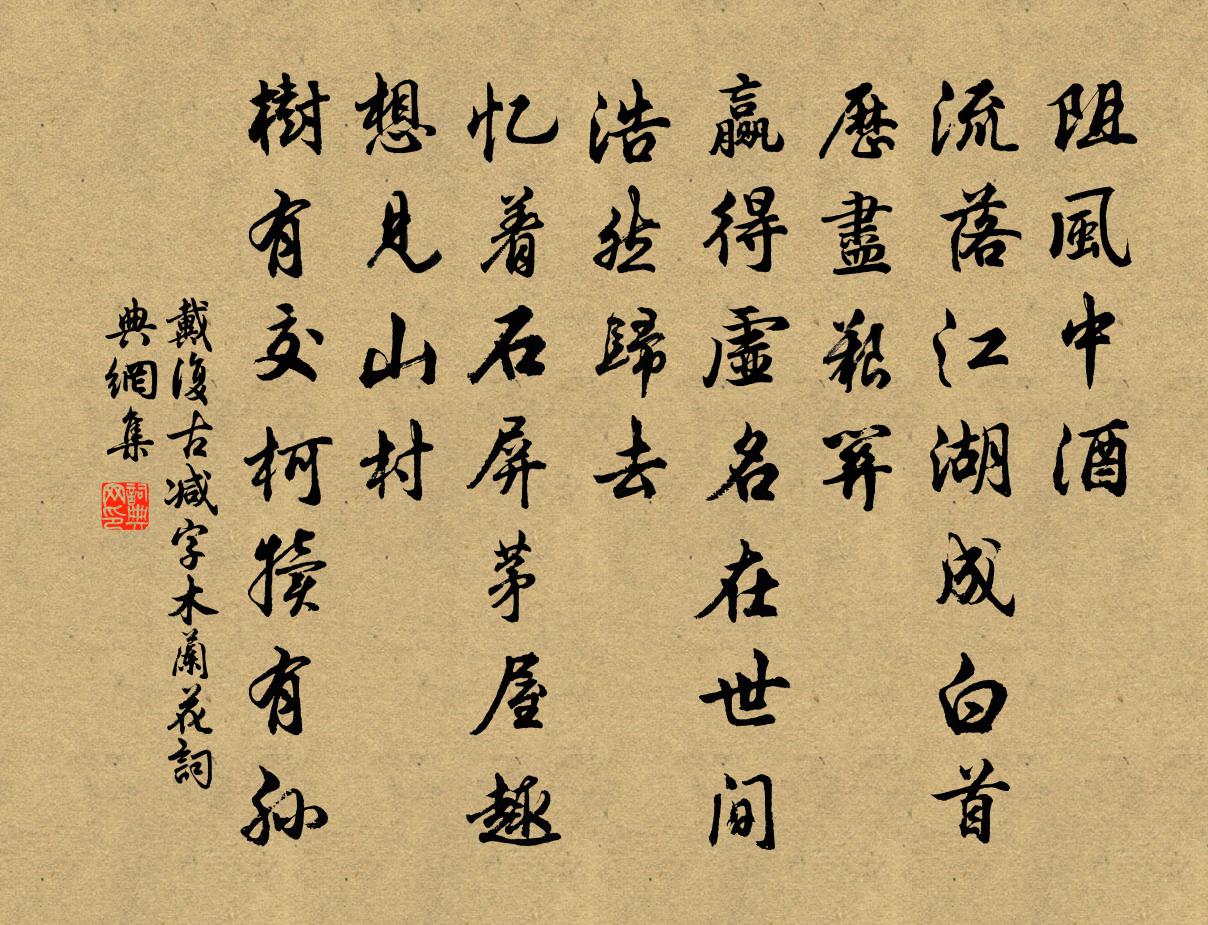 阻風中酒
流落江湖成白首
歷盡艱關
贏得虛名在世间
浩然歸去
忆着石屏茅屋趣
想見山村
樹有交柯犢有孙
戴復古减字木蘭花詞
典網集
詞典
网印